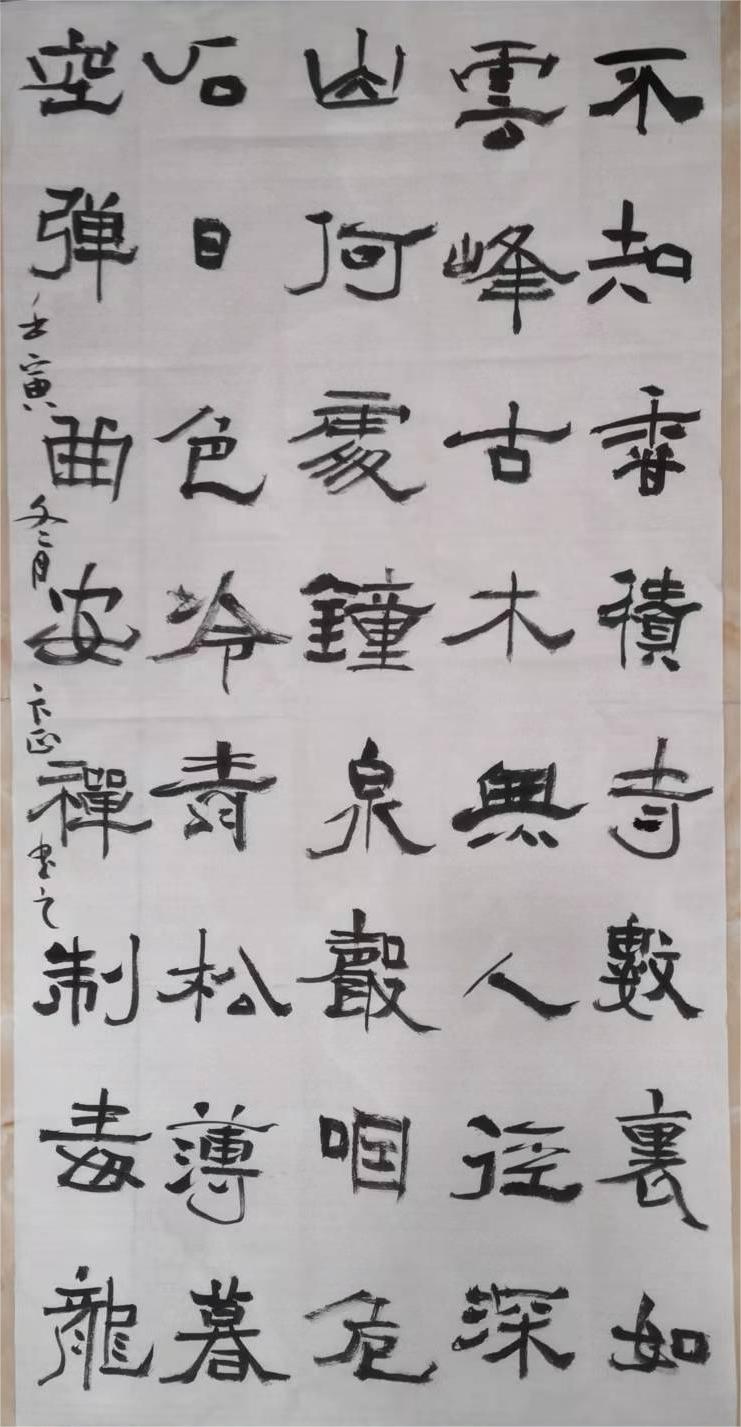 不知香積寺數裏如
雲峰古木無人徑深
山何處鐘泉聲咽危
石日色冷青松薄暮
空弹曲安禪制毒龍
壬寅冬月卞正书之